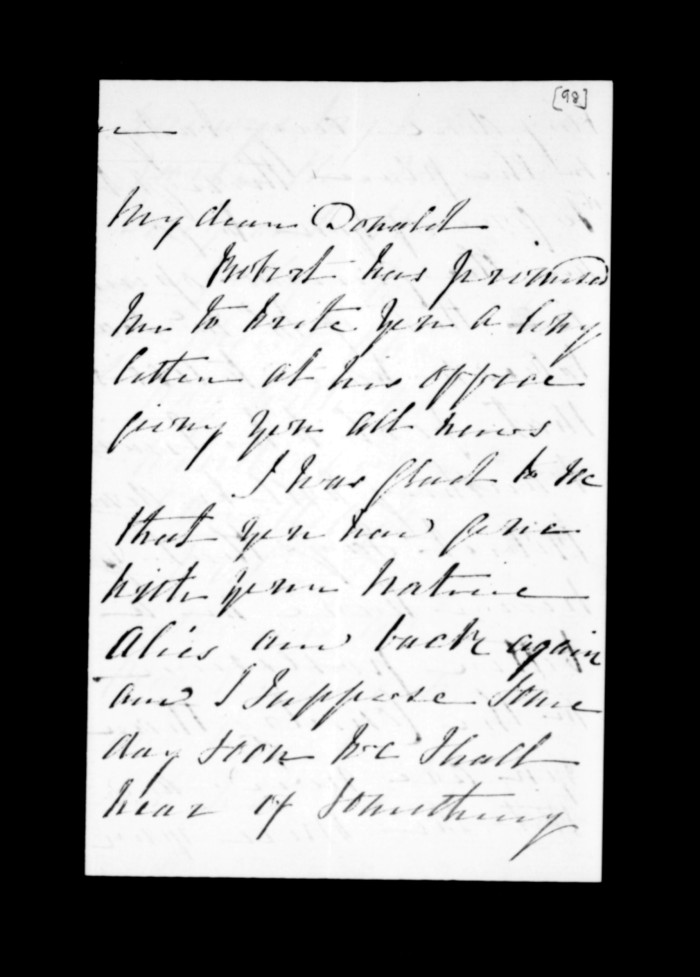 [98]
My dear Donald
Robert has promised
me to write you a long
letter at his office
giving you all news
I was glad to see
that you had gone
with your Native
Allies and back again
and I suppose some
day soon we shall
hear of something